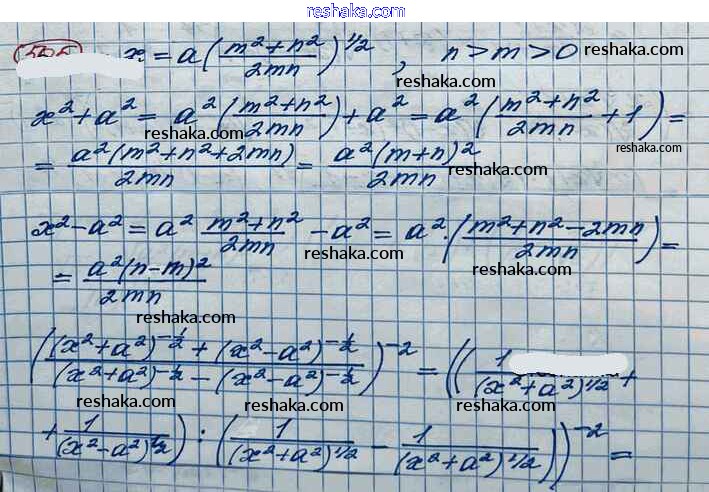 reshaka.com
x = a((m²+n²)/(2mn))^(1/2), n>m>0 reshaka.com
reshaka.com
x²+a² = a²((m²+n²)/(2mn))+a² = a²((m²+n²)/(2mn)+1) =
reshaka.com reshaka.com
= (a²(m²+n²+2mn))/(2mn) = (a²(m+n)²)/(2mn)
reshaka.com reshaka.com
x²-a² = a² (m²+n²)/(2mn) -a² = a²·((m²+n²-2mn)/(2mn)) =
reshaka.com reshaka.com
= (a²(n-m)²)/(2mn)
reshaka.com reshaka.com
(((x²+a²)^(-1/2) + (x²-a²)^(-1/2))/((x²+a²)^(-1/2) - (x²-a²)^(-1/2)))^(-2) = ((1/(x²+a²)^(1/2) +
reshaka.com reshaka.com reshaka.com
+ 1/(x²-a²)^(1/2)) : (1/(x²+a²)^(1/2) - 1/(x²+a²)^(1/2)))^(-2) =
reshaka.com reshaka.com reshaka.com
reshaka.com